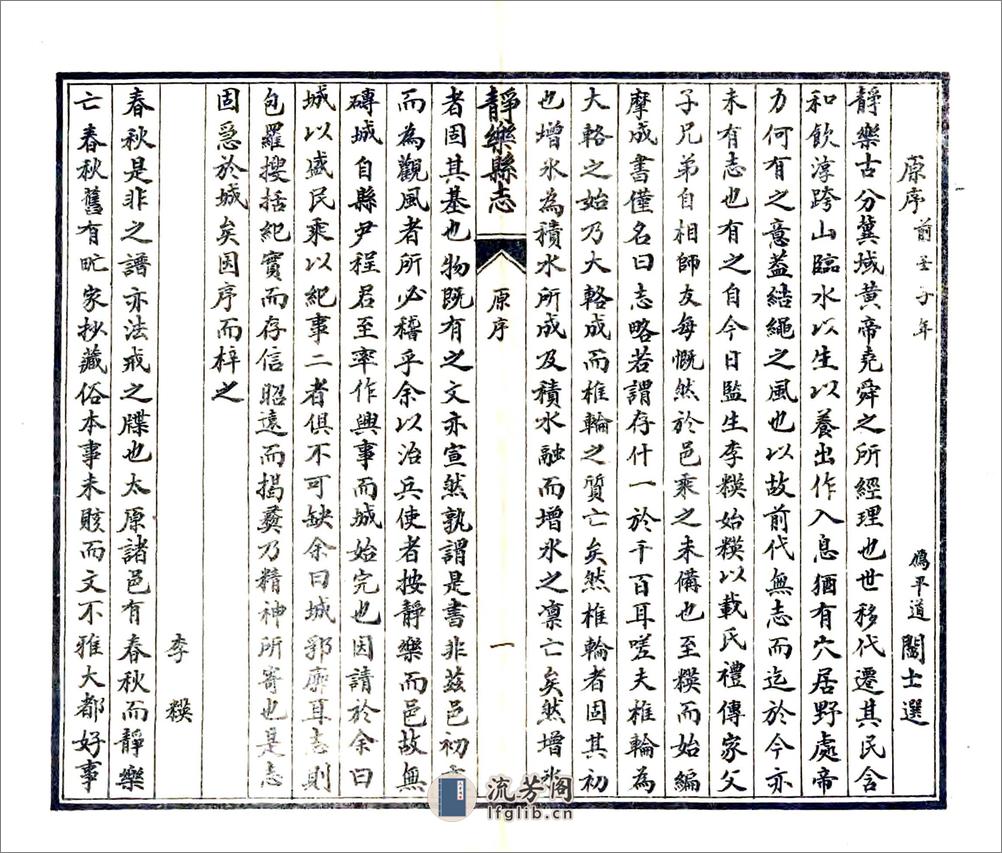 原序 前壬子年
鴈平道 閻士選
靜樂古分冀域黄帝堯舜之所經理也世移代遷其民含
和飲淳跨山臨水以生以養出作入息猶有穴居野處帝
力何有之意蓋結繩之風也以故前代無志而迄於今亦
未有志也有之自今日監生李糢始糢以載氏禮傳家父
子兄弟自相師友每慨然於邑乘之未備也至糢而始編
摩成書僅名曰志略若謂存什一於千百耳嗟夫椎輪為
大輅之始乃大輅成而椎輪之質亡矣然椎輪者固其初
也增氷為積水所成及積水融而增氷之凛亡矣然增氷
靜樂縣志
原序
一
者固其基也物既有之文亦宣然孰謂是書非茲邑初
而為觀風者所必稽乎余以治兵使者按靜樂而邑故無
磚城自縣尹程君至率作興事而城始完也因請於余曰
城以盛民乘以紀事二者俱不可缺余曰城郭廓耳志則
包羅搜括紀實而存信昭遠而揭彝乃精神所寄也是志
固急於城矣因序而梓之
李糢
春秋是非之譜亦法戒之牒也太原諸邑有春秋而靜樂
亡春秋舊有甿家抄藏俗本事未賅而文不雅大都好事
流芳阁
lfglib.cn